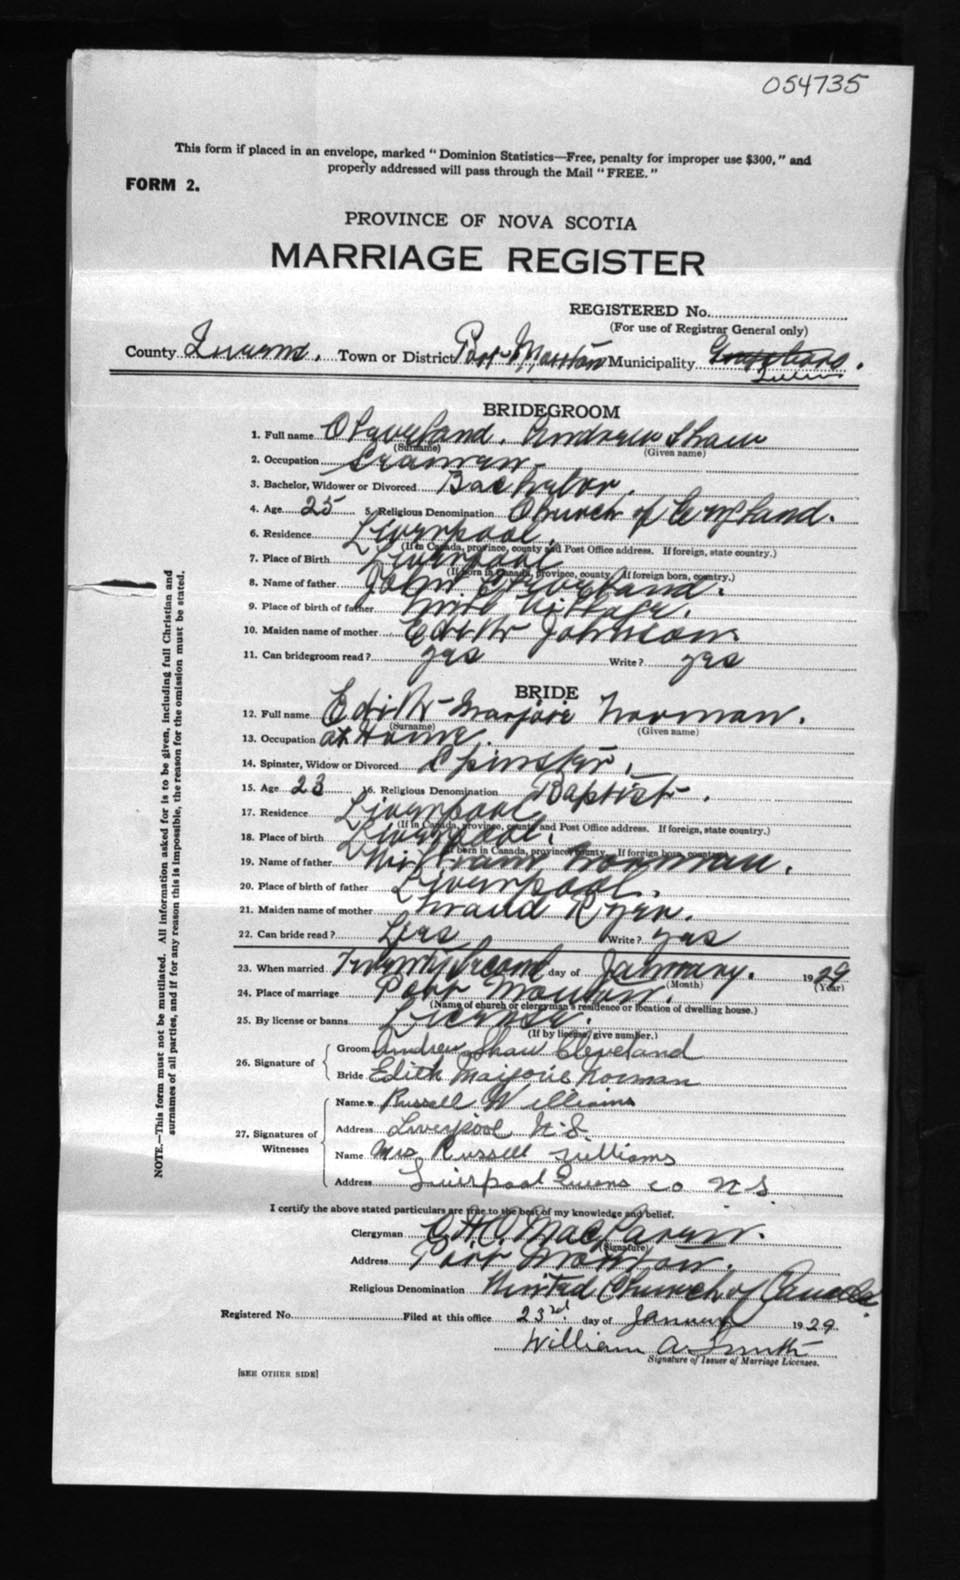 054735
This form if placed in an envelope, marked "Dominion Statistics—Free, penalty for improper use $300," and
properly addressed will pass through the Mail "FREE."
FORM 2.
PROVINCE OF NOVA SCOTIA
MARRIAGE REGISTER
REGISTERED No.
(For use of Registrar General only)
County Queens. Town or District Port Mouton Municipality
Queens
BRIDEGROOM
1. Full name Cleveland. Andrew Shaw
(Surname) (Given name)
2. Occupation Seaman
3. Bachelor, Widower or Divorced Bachelor.
4. Age 25 5. Religious Denomination Church of England.
6. Residence Liverpool.
(If in Canada, province, county and Post Office address. If foreign, state country.)
7. Place of Birth Liverpool
(If born in Canada, province, county. If foreign born, country.)
8. Name of father John Cleveland.
9. Place of birth of father Mill Village.
10. Maiden name of mother Edith Johnson
11. Can bridegroom read? yes Write? yes
BRIDE
12. Full name Edith Marjorie Norman.
(Surname) (Given name)
13. Occupation at Home.
14. Spinster, Widow or Divorced Spinster.
15. Age 23 16. Religious Denomination Baptist.
17. Residence Liverpool
(If in Canada, province, county and Post Office address. If foreign, state country.)
18. Place of birth Liverpool.
If born in Canada, province, county. If foreign born, country
19. Name of father William Norman.
20. Place of birth of father Liverpool.
21. Maiden name of mother Maud Ryer.
22. Can bride read? Yes Write? yes
23. When married Twenty Second day of January. 1929
(Month) (Year)
24. Place of marriage Port Mouton.
(Name of church or clergyman's residence or location of dwelling house.)
25. By license or banns License.
(If by license, give number.)
26. Signature of Groom Andrew Shaw Cleveland
Bride Edith Marjorie Norman
27. Signatures of Witnesses Name Russell Williams
Address Liverpool N.S.
Name Mrs Russell Williams
Address Liverpool Queens co N.S.
I certify the above stated particulars are true to the best of my knowledge and belief.
Clergyman MacLaren.
(Signature)
Address Port Mouton.
Religious Denomination United Church of Canada.
Registered No. Filed at this office 23rd day of January 1929.
William A. Smith
Signature of Issuer of Marriage Licenses.
[SEE OTHER SIDE]
NOTE.—This form must not be mutilated. All information asked for is to be given, including full Christian and
surnames of all parties, and if for any reason this is impossible, the reason for the omission must be stated.